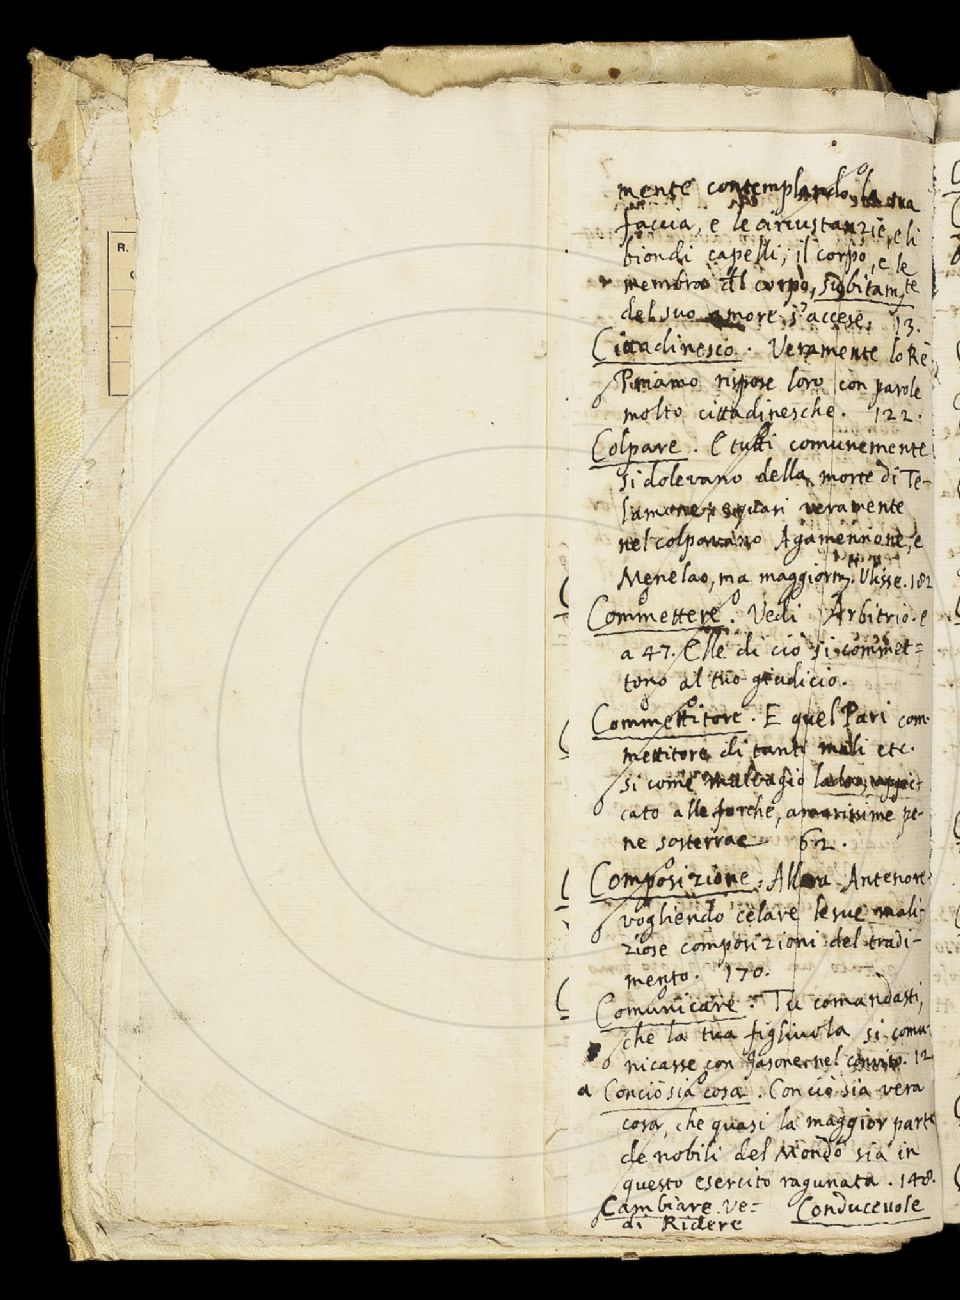 mente contemplando la sua
faccia, e le circustanzie, e li
biondi capelli, il corpo, e le
membra del corpo, subitamte
del suo amore s'accese. 13.
Cittadinesco. Veramente lo Rè
Priamo rispose loro con parole
molto cittadinesche. 122.
Colpare. E tutti comunemente
si dolevano della morte di Te-
lamone, quari veramente
nel colpavano Agamennone, e
Menelao, ma maggiorm. Ulisse. 182
Commettere. Vedi Arbitrio. e
a 47. Elle di ciò si commet=
tono al tuo giudicio.
Commettitore. E quel Pari com-
mettitore di tanti mali etc.
si come malvagio appic-
cato alle forche, amarissime pe-
ne sosterrae 62.
Composizione. Allora Antenore
vogliendo celare le sue mali-
ziose composizioni del tradi-
mento. 170.
Comunicare. Tu comandasti,
che la tua figliuola si comu-
nicasse con Jasone nel convito. 12
a Conciosia cosa. Conciò sia vera
cosa, che quasi la maggior parte
de nobili del Mondo sia in
questo esercito ragunata. 148.
Cambiare. Ve=
di Ridere
Conducevole
R.